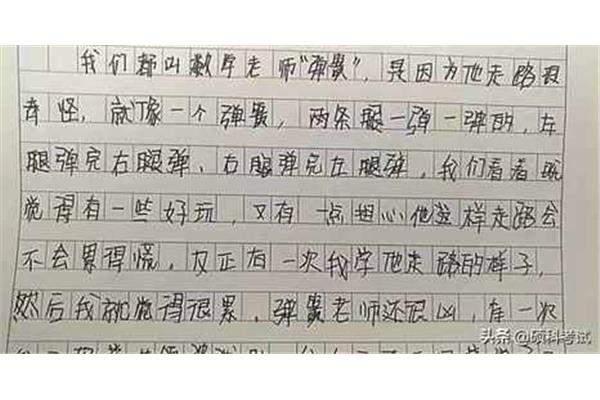 我们都叫数学老师"弹簧",是因为他走路很
奇怪,就像一个弹簧,两条腿一弹一弹的,左
腿弹完右腿弹、右腿弹完左腿弹,我们看着既
觉得有一些好玩,又有一点担心他这样走路会
不会累得慌,反正有一次我学他走路的样子,
然后我就觉得很累,弹簧老师还很凶,有一次
头条@硕科考试